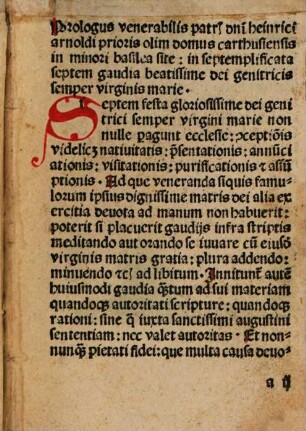 Prologus venerabilis patrꝭ dn̄i heinrici
arnoldi prioris olim domus carthusiensis
in minori basilea site : in septemplificata
septem gaudia beatissime dei genitricis
semper virginis marie ·
Septem festa gloriosissime dei geni
trici semper virgini marie non
nulle pagunt ecclesie : ↄceptiōis
videlicꝫ natiuitatis : p̄sentationis : annūci
ationis : visitationis : purificationis ⁊ assū
ptionis · Ad que veneranda siquis famu-
lorum ipsius dignissime matris dei alia ex
ercitia deuota ad manum non habuerit :
poterit si placuerit gaudijs infra scriptis
meditando aut orando se iuuare cū eiusdē
virginis matris gratia : plura addendo :
minuendo ⁊cꝭ ad libitum · Innitunt̄ autē
huiusmodi gaudia q̄tum ad sui materiam
quandoqꝫ autoritati scripture : quandoqꝫ
rationi : sine q̄ iuxta sanctissimi augustini
sententiam : nec valet autoritas · Et non-
nunqꝫ pietati fidei : que multa causa deuo-
a ij